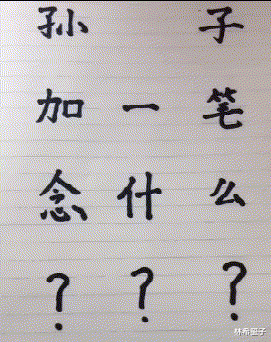 孙 子
加 一 笔
念 什 么
? ? ?
林希留子